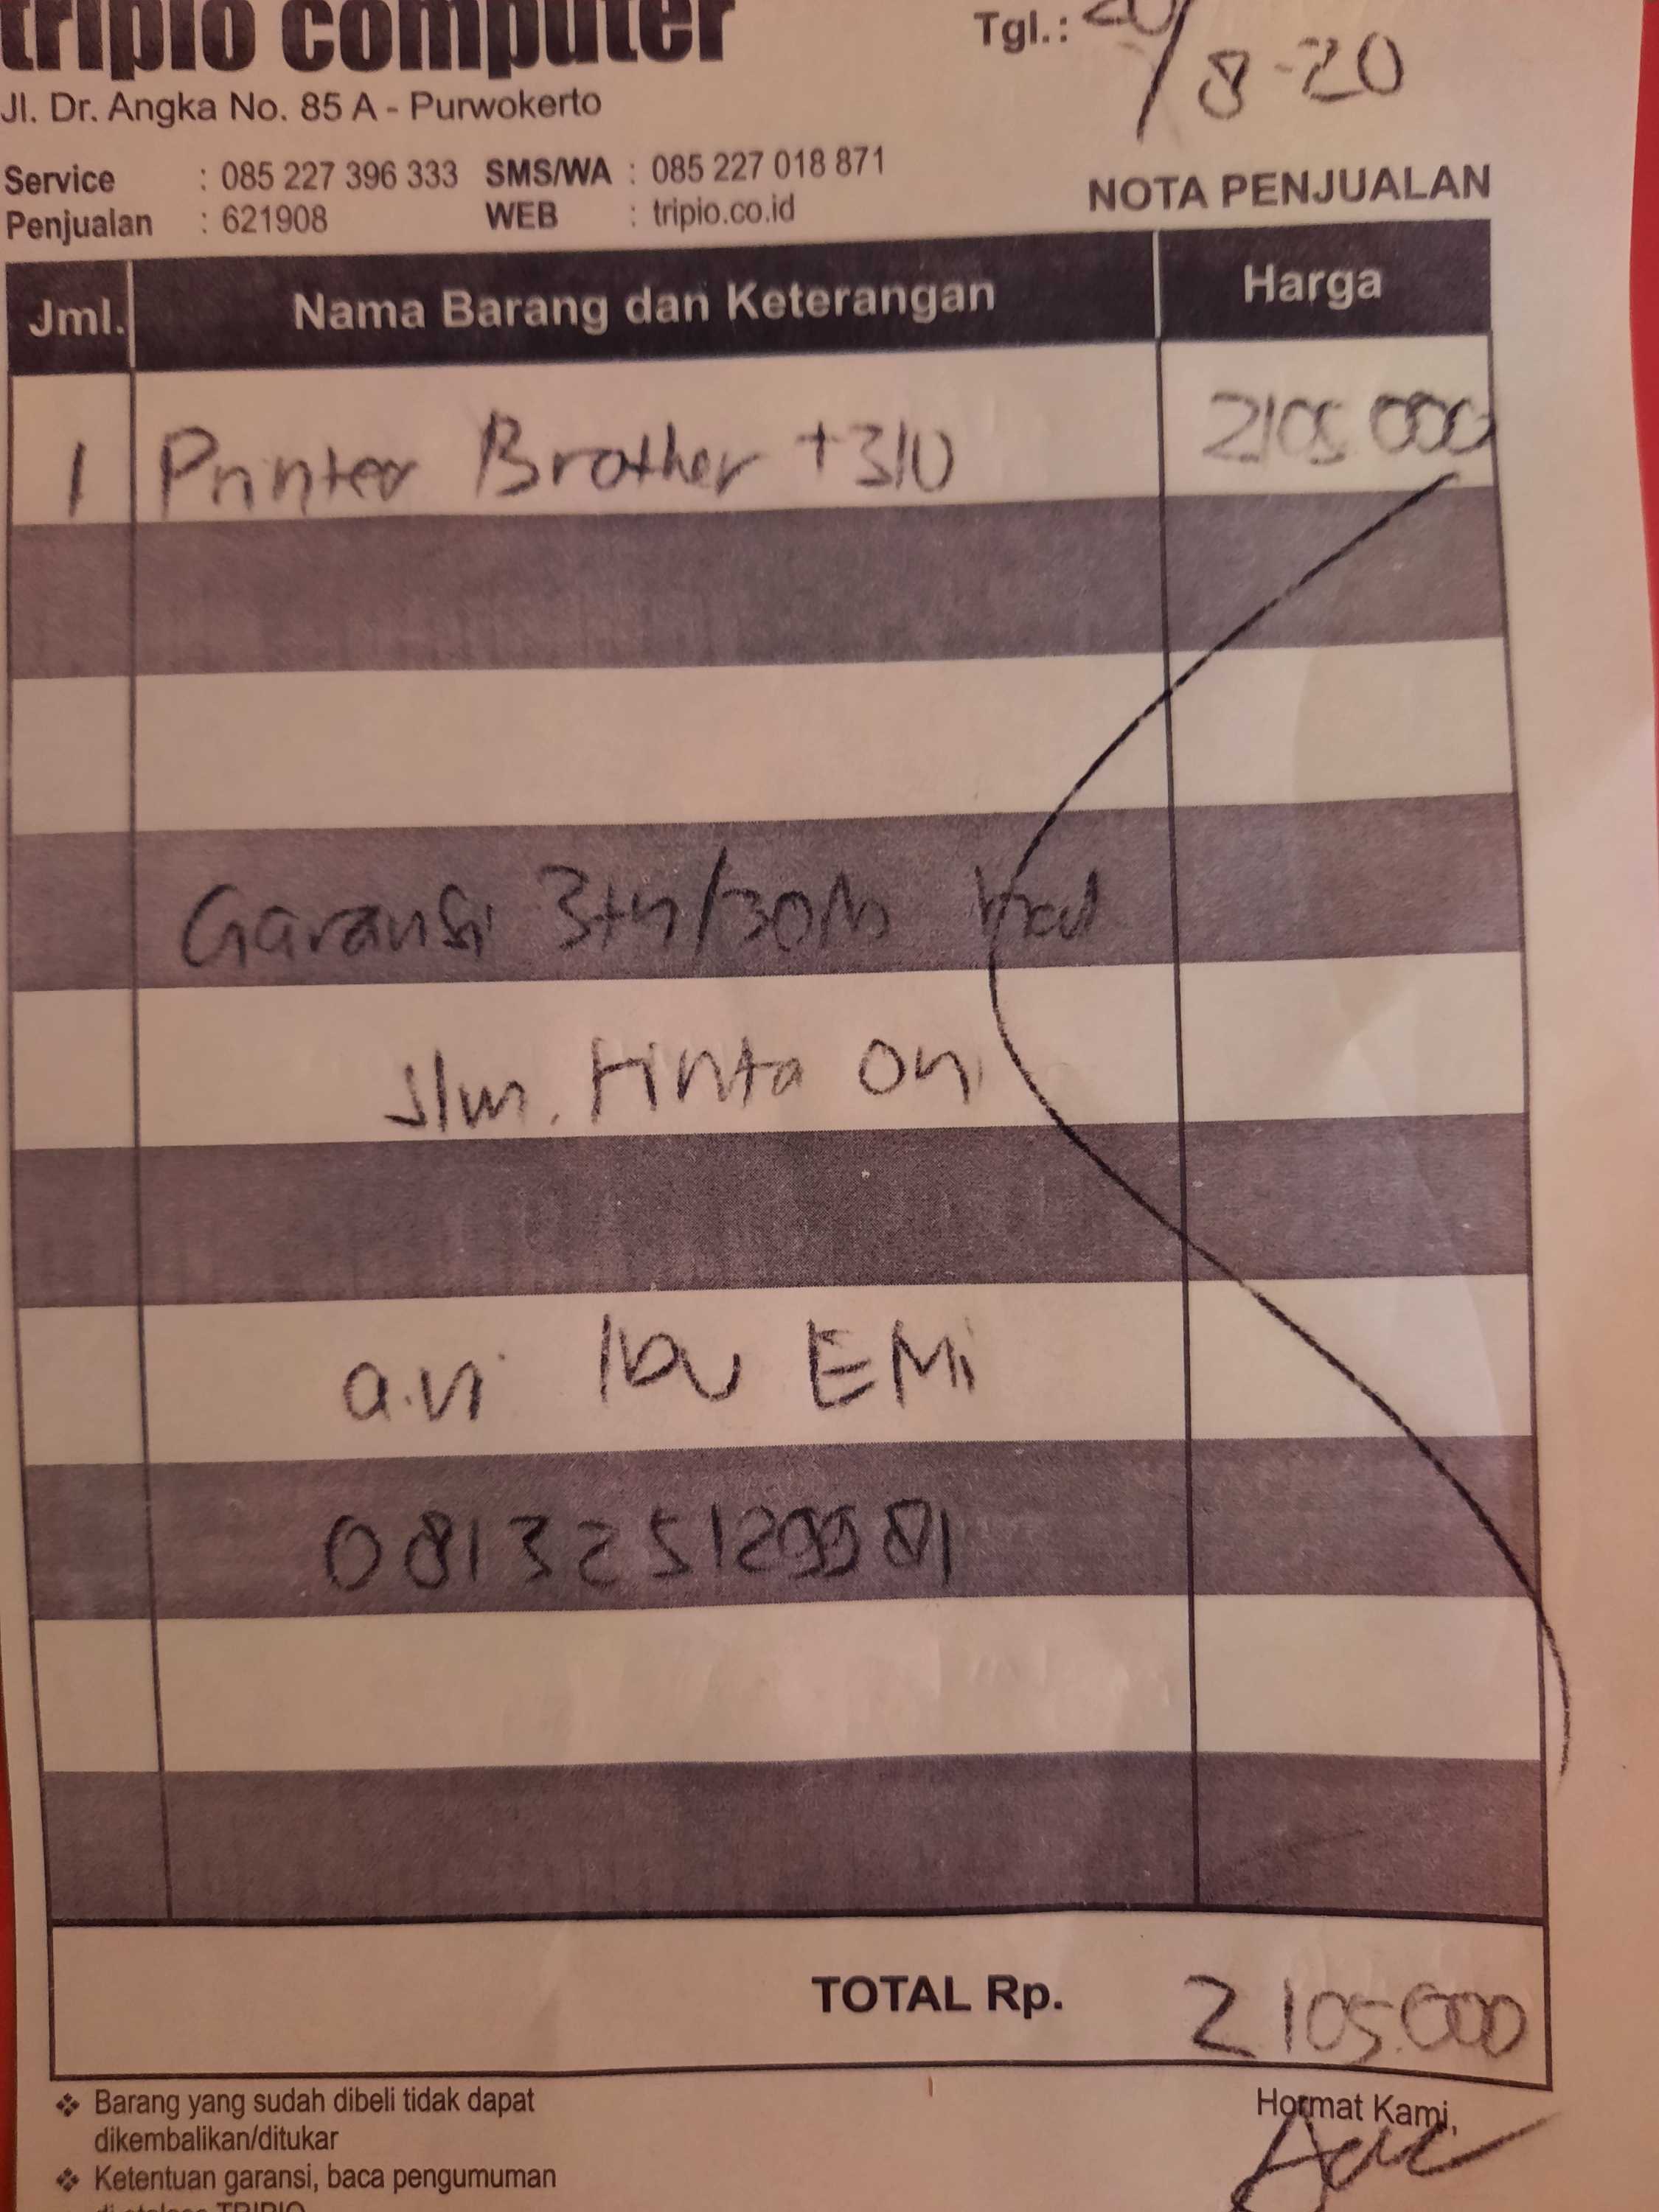 tripio computer
Tgl.: 20/8-20
Jl. Dr. Angka No. 85 A - Purwokerto
Service : 085 227 396 333 SMS/WA : 085 227 018 871
Penjualan : 621908 WEB : tripio.co.id
NOTA PENJUALAN
Jml. Nama Barang dan Keterangan Harga
1 Printer Brother +310 2105.000
Garansi 3th/30
tinta Ori
a.n Ibu EMi
TOTAL Rp. 2.105.000
❖ Barang yang sudah dibeli tidak dapat
dikembalikan/ditukar
❖ Ketentuan garansi, baca pengumuman
di etalase TRIPIO
Hormat Kami,